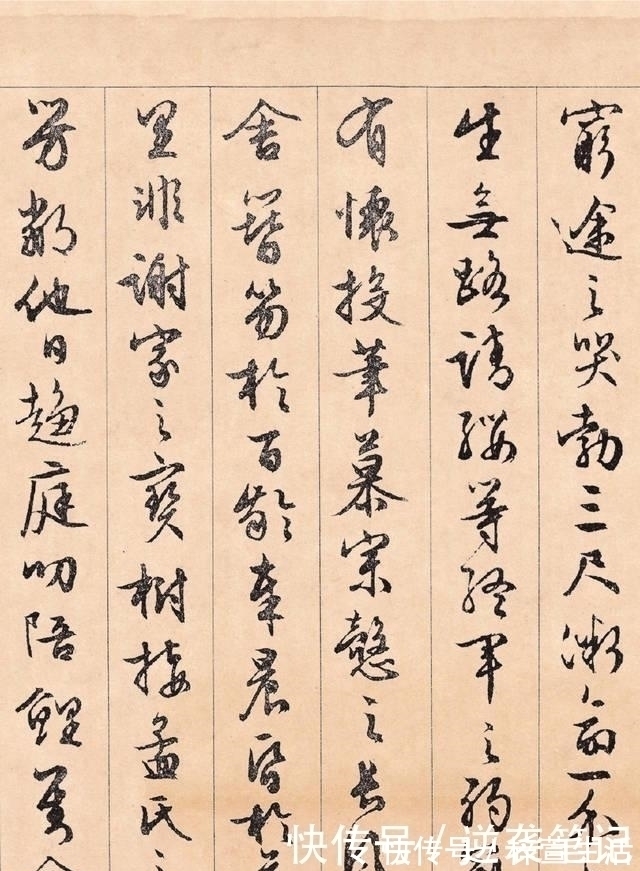 窮途之哭勃三尺微命一介
生無路請纓等終軍之弱
有懷投筆慕宗愨之長
舍簪笏於百齡奉晨昏於
里非謝家之寶樹接孟氏之
芳鄰他日趨庭叨陪鯉對
快传号/逆袭笔记